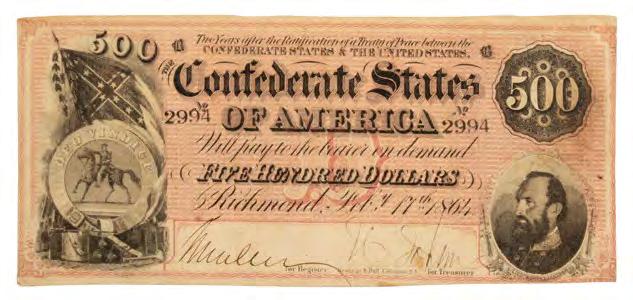 500
Two Years after the Ratification of a Treaty of Peace between the
CONFEDERATE STATES & THE UNITED STATES,
THE Confederate States
500
No 2994 OF AMERICA No 2994
Will pay to the bearer on demand
FIVE HUNDRED DOLLARS
Richmond, Feby 17th 1864
DEO VINDICE
for Register
for Treasurer